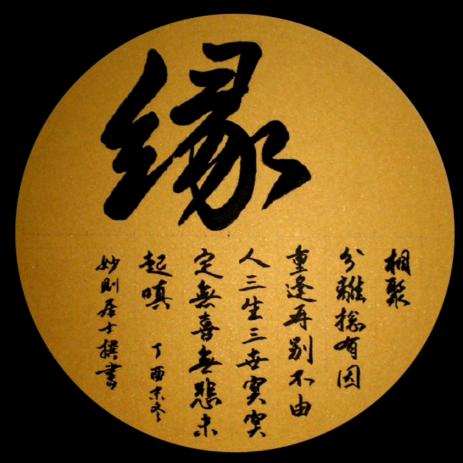 緣
相聚
分離總有因
重逢再別不由
人三生三世冥冥
定無喜無悲未
起嗔
丁酉末冬
妙則居士撰書